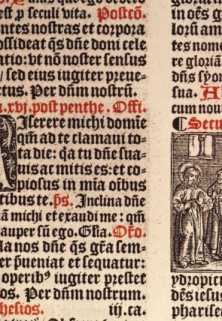 p seculi vita. Postcō.
ntes nostras et corpora
ossideat q̄s dn̄e doni cele
atio: vt nō noster sensus
sed eius iugiter preue-
ctus. Per dn̄m nostrū.
.xvj. post penthe. Offi.
Iserere michi domīe
qm̄ ad te clamaui to
ta die: q̄a tu dn̄e sua
uis ac mitis es: et co
piosus in mīa oībus
tibus te. p̄s. Inclina dn̄e
ā michi et exaudi me: qm̄
auper sū ego. Glīa. Orō.
la nos dn̄e q̄s grā sem
er p̄ueniat et sequatur:
operibꝰ iugiter prestet
os. Per dn̄m nostrum.
hesios. iij. ca.
in oēs g
lorū am
tes nom
re gloriā
dn̄s syon
sua. A
cum nat
¶ Secu
ydropic
dēs iesu
pharise